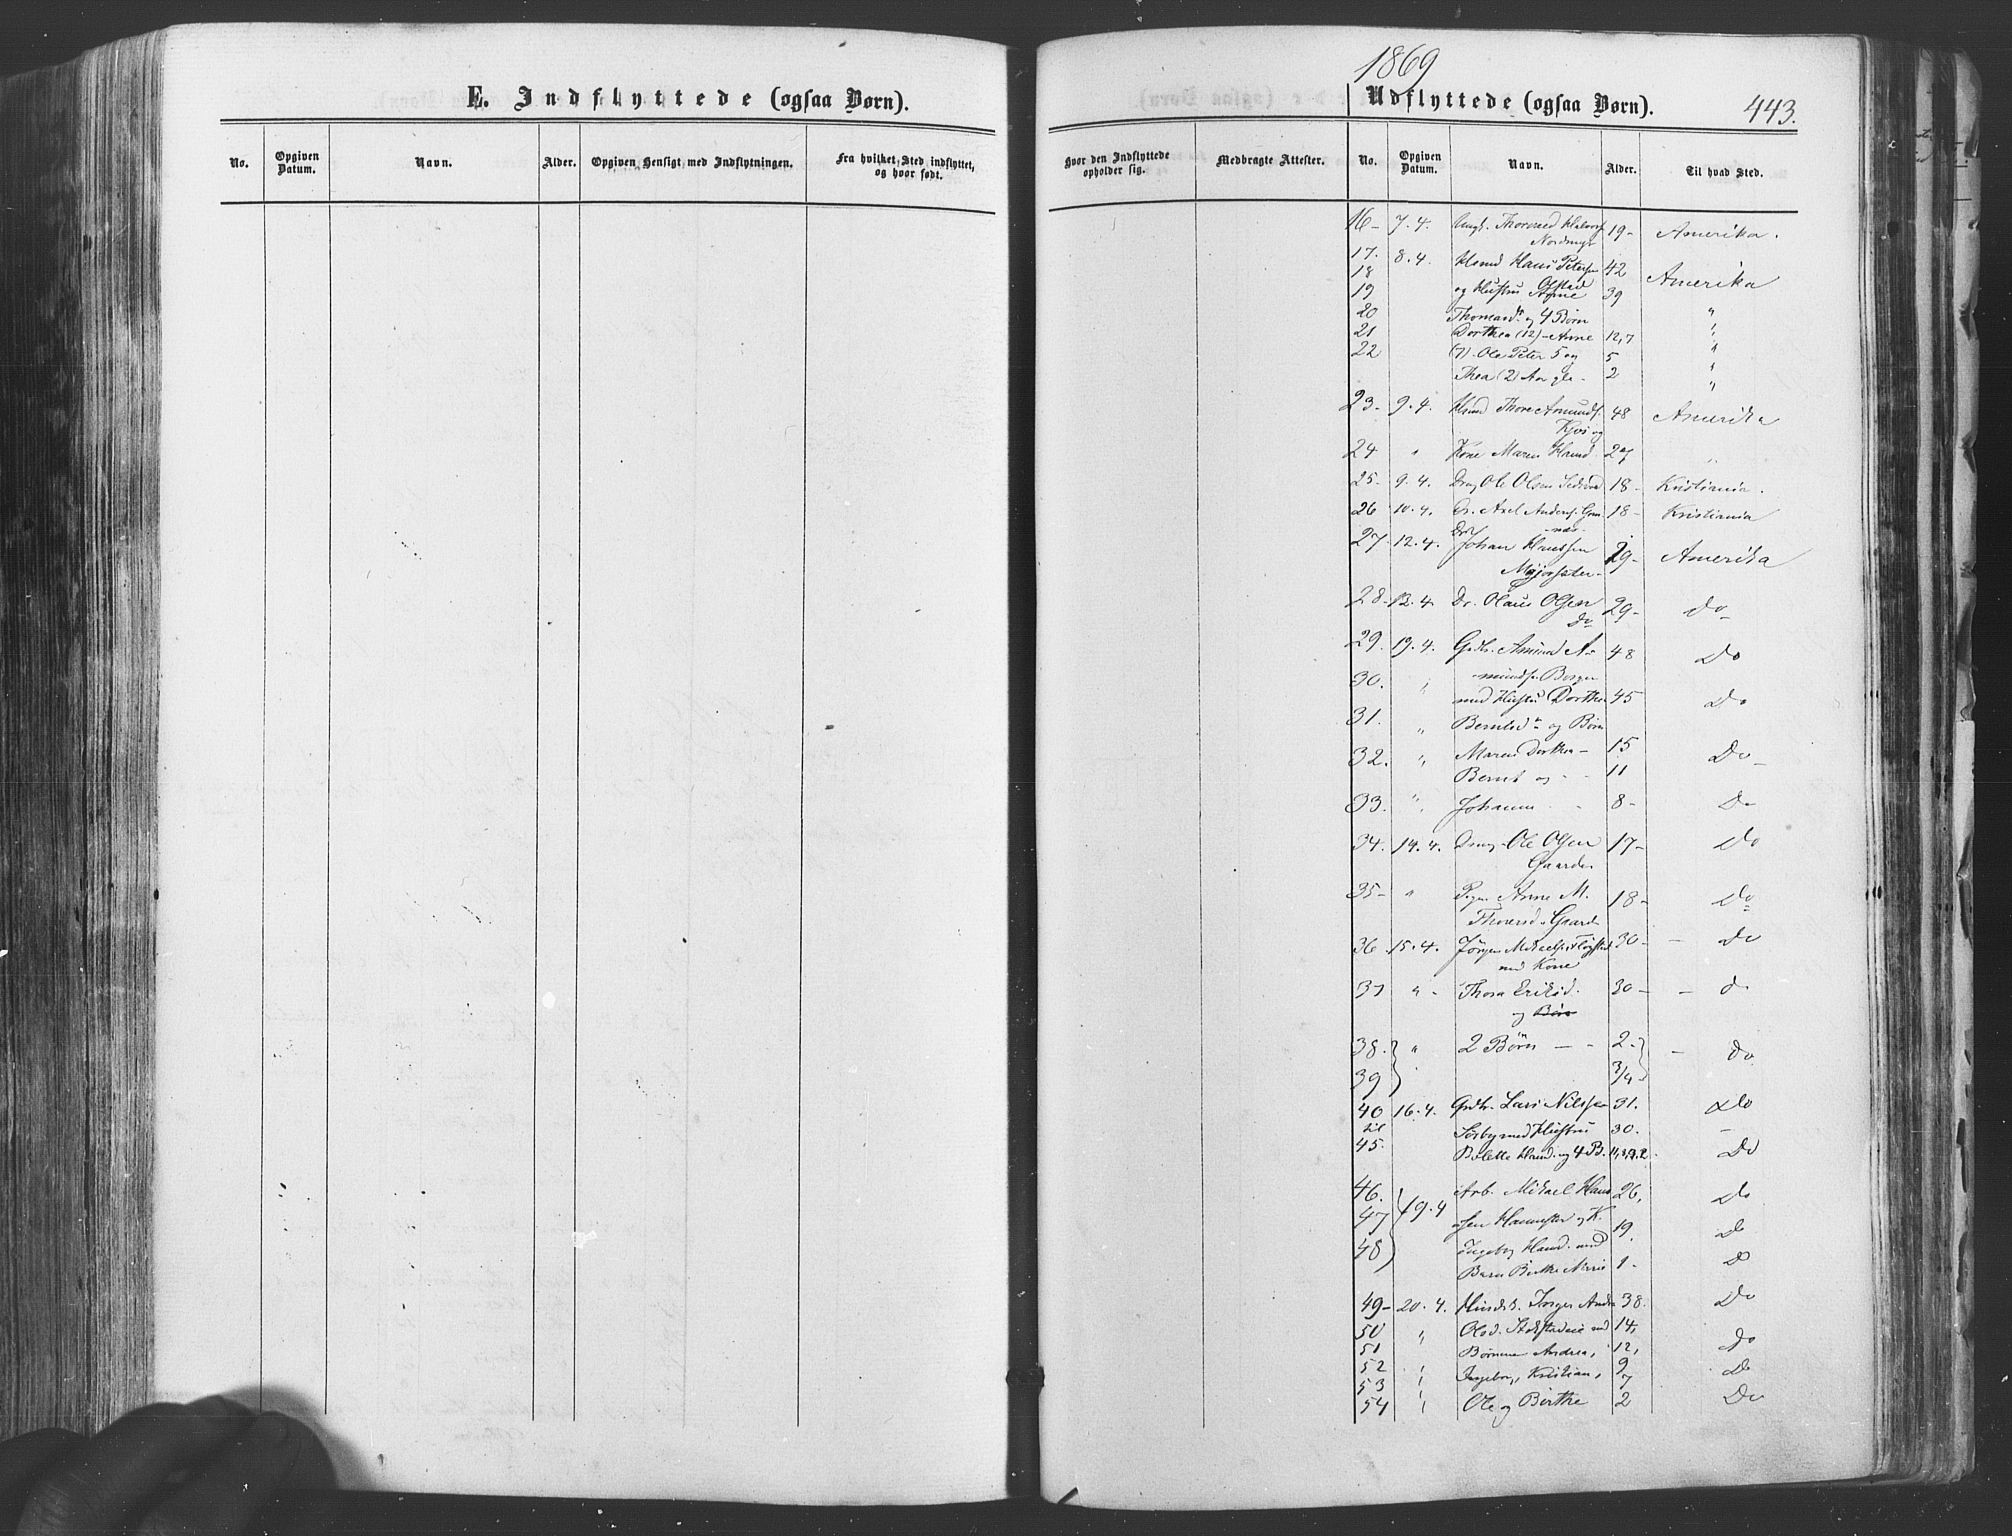 1869
443.
E. Indflyttede (ogsaa Børn).
No.
Opgiven Datum.
Navn.
Alder.
Opgiven Hensigt med Indflytningen.
Fra hvilket Sted indflyttet, og hvor født.
Hvor den Indflyttede opholder sig.
Medbragte Attester.
Udflyttede (ogsaa Børn).
No.
Opgiven Datum.
Navn.
Alder.
Til hvad Sted.
16- 7.4. Ungk. Thorvald Halvors 19- Amerika.
17. 8.4. Hmd Hans Petersen 42 Amerika
18 Olstad
19 og Hustru Anne 39
20 Thomasd. og 4 Børn "
21 Dorthea (12) - Anne 12,7 "
22 (7). Ole Peter 5 og 5 "
Thea (2) Aar gle. 2 "
23- 9.4. Hmd Thore Amunds. 48 Amerika
og
24 " Kone Maren Hansd. 27 "
25- 9.4. Drng Ole Olsen 18- Kristiania.
26 10.4. Dr. Axel Anders. 18- Kristiania
27. 12.4. Johan Hanssen 29- Amerika
28- 13.4 Dr. Olaus Olsen 29- Do
Do
29. 13.4. Grdbr. Amund A- 48 Do
30. " mundsen Berger
med Hustru Dorthe 45 Do
31. " Berntsd. og Børn
32. " Maren Dorthea - 15 Do
Bernt og - - 11
33. " Johanne 8- Do
34. 14.4. Drng. Ole Olsen 17- Do
Gaarder
35- " Pige Anne M. 18- Do
Thoresd. Gaard
36 15.4. Jørgen Mikaels. 30- - Do
med Kone
37 " - Thora Eriksd. 30- - do
og Børn
38. " 2 Børn - - 2. - Do
39 3/4
40 16.4. Grdbr. Lars Nilssen 31. Do
til Sørby med Hustru 30.
45. Bolette Hansd. og 4 B. Do
46. 19.4 Arb. Mikael Hans 26, Do
47 og K. 19. Do
48 Ingeborg Hansd. med
Barn Birthe Marie 1- Do
49- 20.4. Inger Andrea 38. Do
50 " Olsd. med 14,
51 Børnene Andrea, 12, Do
52 " Ingeborg, Kristian, 9 Do
53 " 7
54 " Ole og Birthe 2 Do